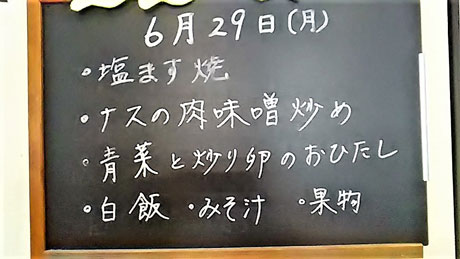 6月29日(月)
・塩ます焼
・ナスの肉味噌炒め
・青菜と炒り卵のおひたし
・白飯 ・みそ汁 ・果物